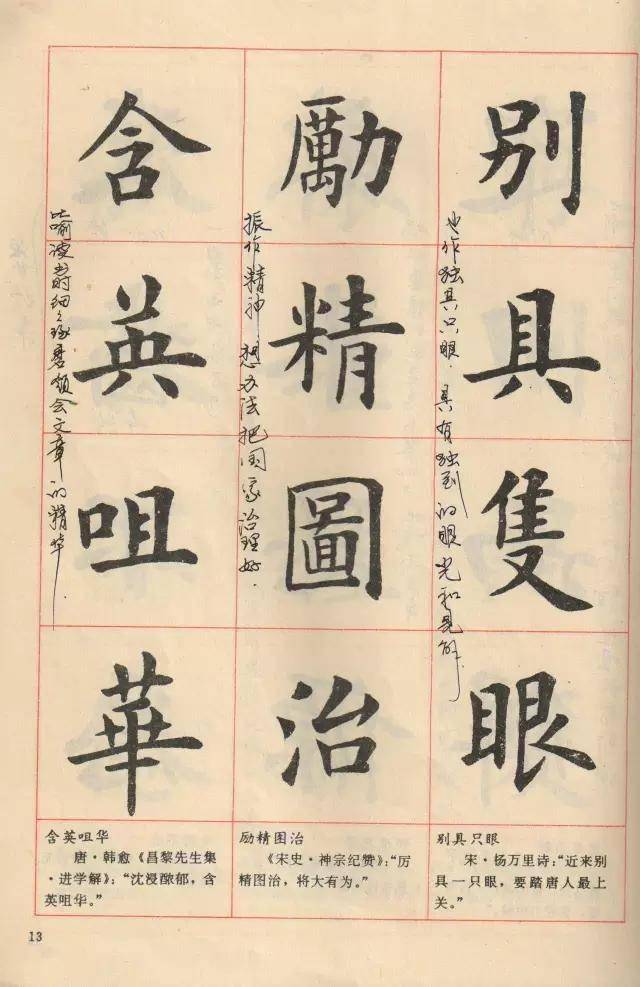 别具隻眼
也作独具只眼．具有独到的眼光和见解．
勵精圖治
振作精神 想办法把国家治理好．
含英咀華
比喻读书时细细琢磨领会文章的精华．
别具只眼
宋·杨万里诗：“近来别
具一只眼，要踏唐人最上
关。”
励精图治
《宋史·神宗纪赞》：“厉
精图治，将大有为。”
含英咀华
唐·韩愈《昌黎先生集
·进学解》：“沈浸酿郁，含
英咀华。”
13